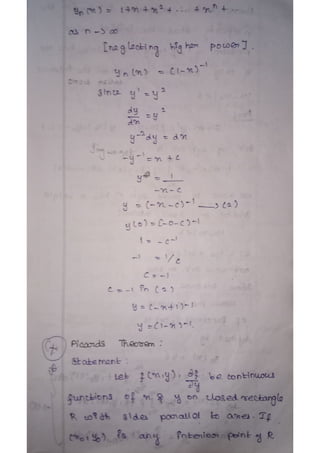 yₙ(x) = 1+x+x²+...+xⁿ+...
as n→∞
[neglecting higher power].
yₙ(x) = (1-x)⁻¹
since y' = y²
dy/dx = y²
y⁻²dy = dx
-y⁻¹ = x+c
y = 1/-x-c
y = (-x-c)⁻¹ → (2)
y(0) = (-0-c)⁻¹
1 = -c⁻¹
-1 = 1/c
c = -1
c = -1 in (2)
y = (-x+1)⁻¹
y = (1-x)⁻¹.
Picards Theorem :
Statement :
Let f(x,y), ∂f/∂y be continuous
functions of x & y on closed rectangle
R with sides parallel to axes. If
(x₀,y₀) is any interior point of R